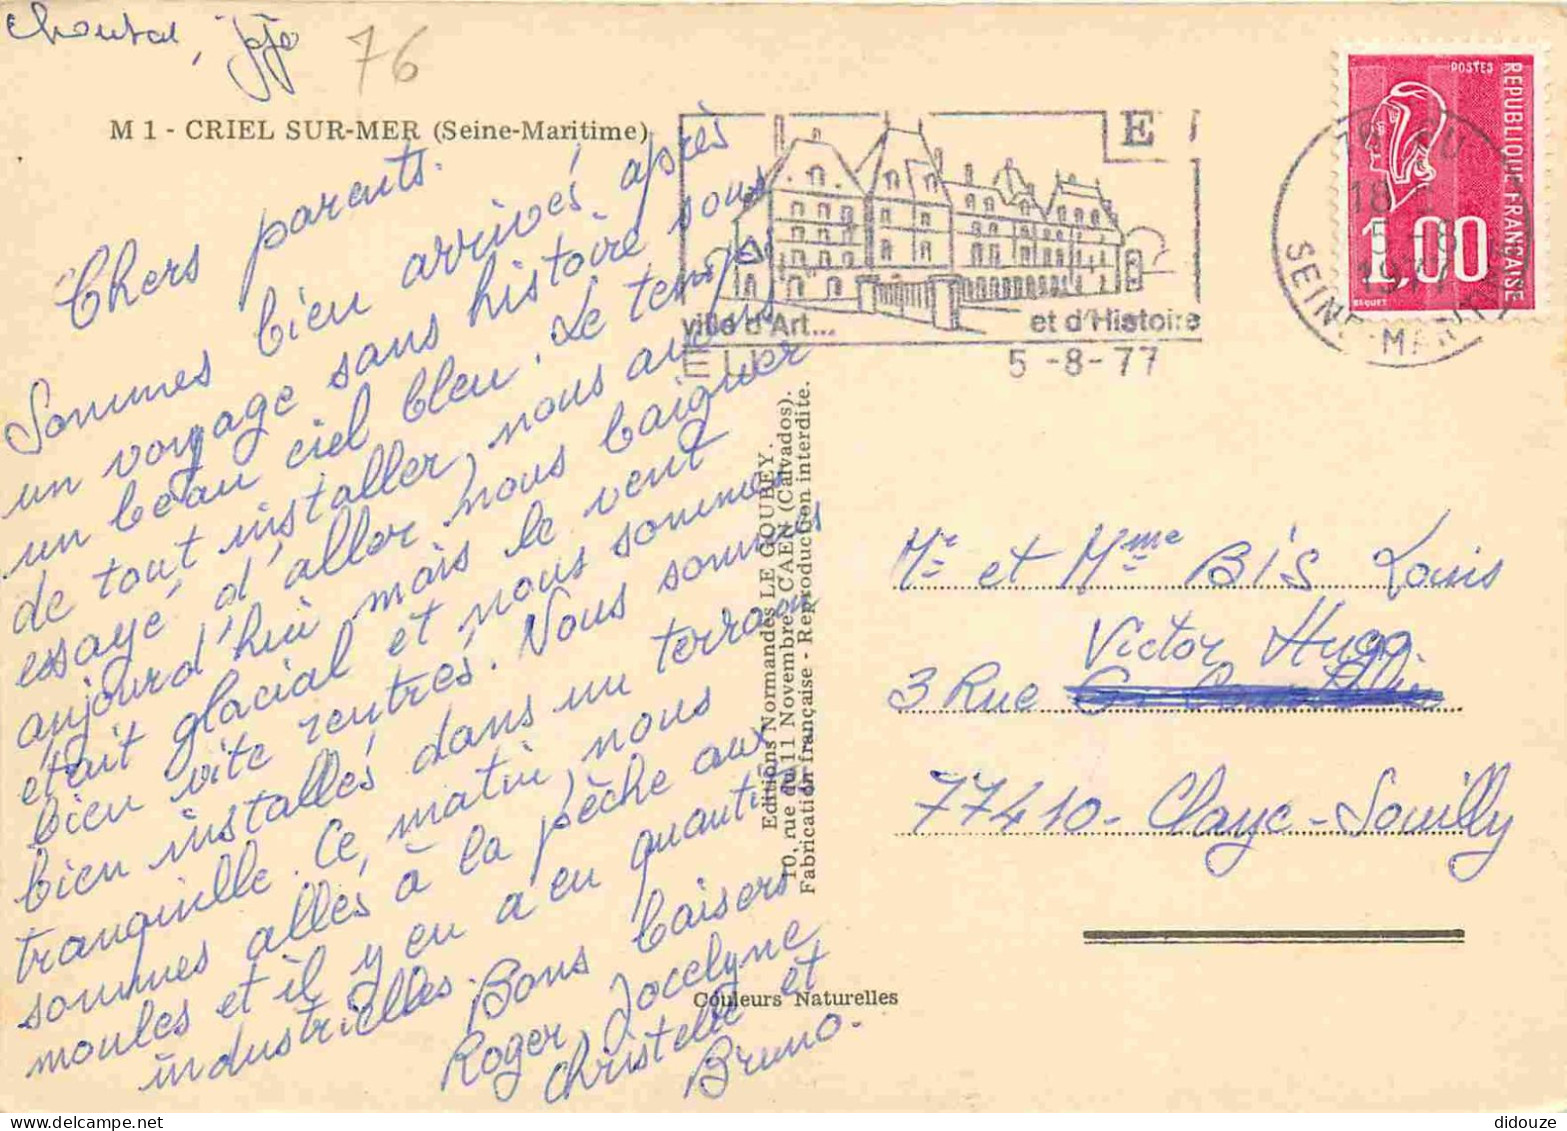 Chantal, Jojo
76
M 1 - CRIEL SUR-MER (Seine-Maritime)
Chers parents.
Sommes bien arrivés après
un voyage sans histoire sous
un beau ciel bleu. Le temps
de tout installer, nous avons
essayé d'aller nous baigner
aujourd'hui mais le vent
était glacial et nous sommes
bien vite rentrés. Nous sommes
bien installés dans un terrain
tranquille. Ce matin, nous
sommes allés à la pêche aux
moules et il y en a en quantités
industrielles. Bons baisers
Roger, Jocelyne
Christelle et
Bruno.
E
ville d'Art... et d'Histoire
EU 5-8-77
76 EU
18 H
5 -8
1977
SEINE-MARITIME
POSTES
REPUBLIQUE FRANÇAISE
1,00
BEQUET
Editions Normandes LE GOUBEY.
10, rue du 11 Novembre, CAEN (Calvados).
Fabrication française - Reproduction interdite.
Couleurs Naturelles
Mr et Mme BIS Louis
Victor Hugo
3 Rue
77410 - Claye-Souilly
didouze